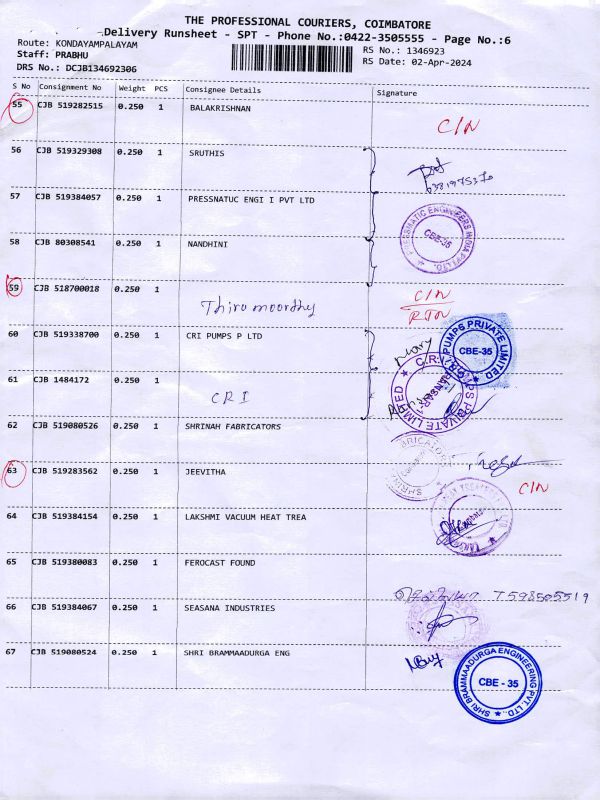 THE PROFESSIONAL COURIERS, COIMBATORE
Delivery Runsheet - SPT - Phone No.:0422-3505555 - Page No.:6
Route: KONDAYAMPALAYAM
Staff: PRABHU
DRS No.: DCJB134692306
RS No.: 1346923
RS Date: 02-Apr-2024
S No Consignment No Weight PCS Consignee Details Signature
55 CJB 519282515 0.250 1 BALAKRISHNAN C/N
56 CJB 519329308 0.250 1 SRUTHIS
57 CJB 519384057 0.250 1 PRESSNATUC ENGI I PVT LTD
PRESSMATIC ENGINEERS INDIA PVT LTD CBE-35
58 CJB 80308541 0.250 1 NANDHINI
59 CJB 518700018 0.250 1 Thiru moorthy C/N RTN
60 CJB 519338700 0.250 1 CRI PUMPS P LTD
C.R.I. PUMPS PRIVATE LIMITED CBE-35
61 CJB 1484172 0.250 1 CRI
C.R.I. PUMPS PRIVATE LIMITED
62 CJB 519080526 0.250 1 SHRINAH FABRICATORS
63 CJB 519283562 0.250 1 JEEVITHA C/N
64 CJB 519384154 0.250 1 LAKSHMI VACUUM HEAT TREA
65 CJB 519380083 0.250 1 FEROCAST FOUND
66 CJB 519384067 0.250 1 SEASANA INDUSTRIES
67 CJB 519080524 0.250 1 SHRI BRAMMAADURGA ENG
SHRI BRAMMAADURGA ENGINEERING PVT. LTD. CBE - 35